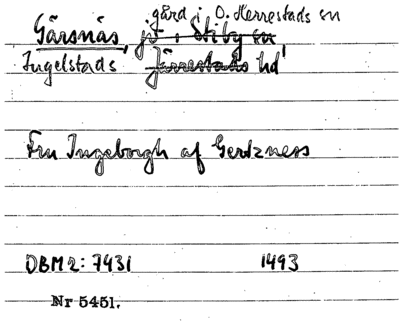 gård i Ö. Herrestads sn
Gärsnäs, jö i Stiby sn,
Ingelstads Järrestads hd
Fru Ingeborgh af Gerdzness
DBM 2: 7431 1493
Nr 5451.